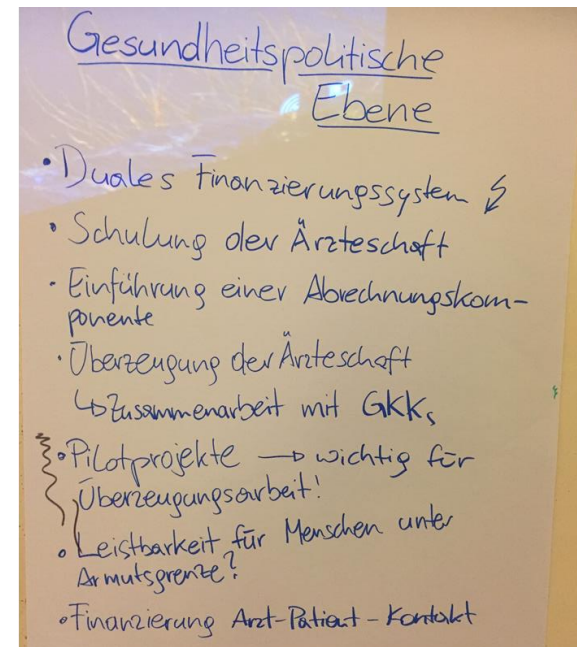 Gesundheitspolitische
Ebene
• Duales Finanzierungssystem
• Schulung der Ärzteschaft
• Einführung einer Abrechnungskom-
ponente
• Überzeugung der Ärzteschaft
↳ Zusammenarbeit mit GKKs
• Pilotprojekte → wichtig für
Überzeugungsarbeit!
• Leistbarkeit für Menschen unter
Armutsgrenze?
• Finanzierung Arzt-Patient-Kontakt